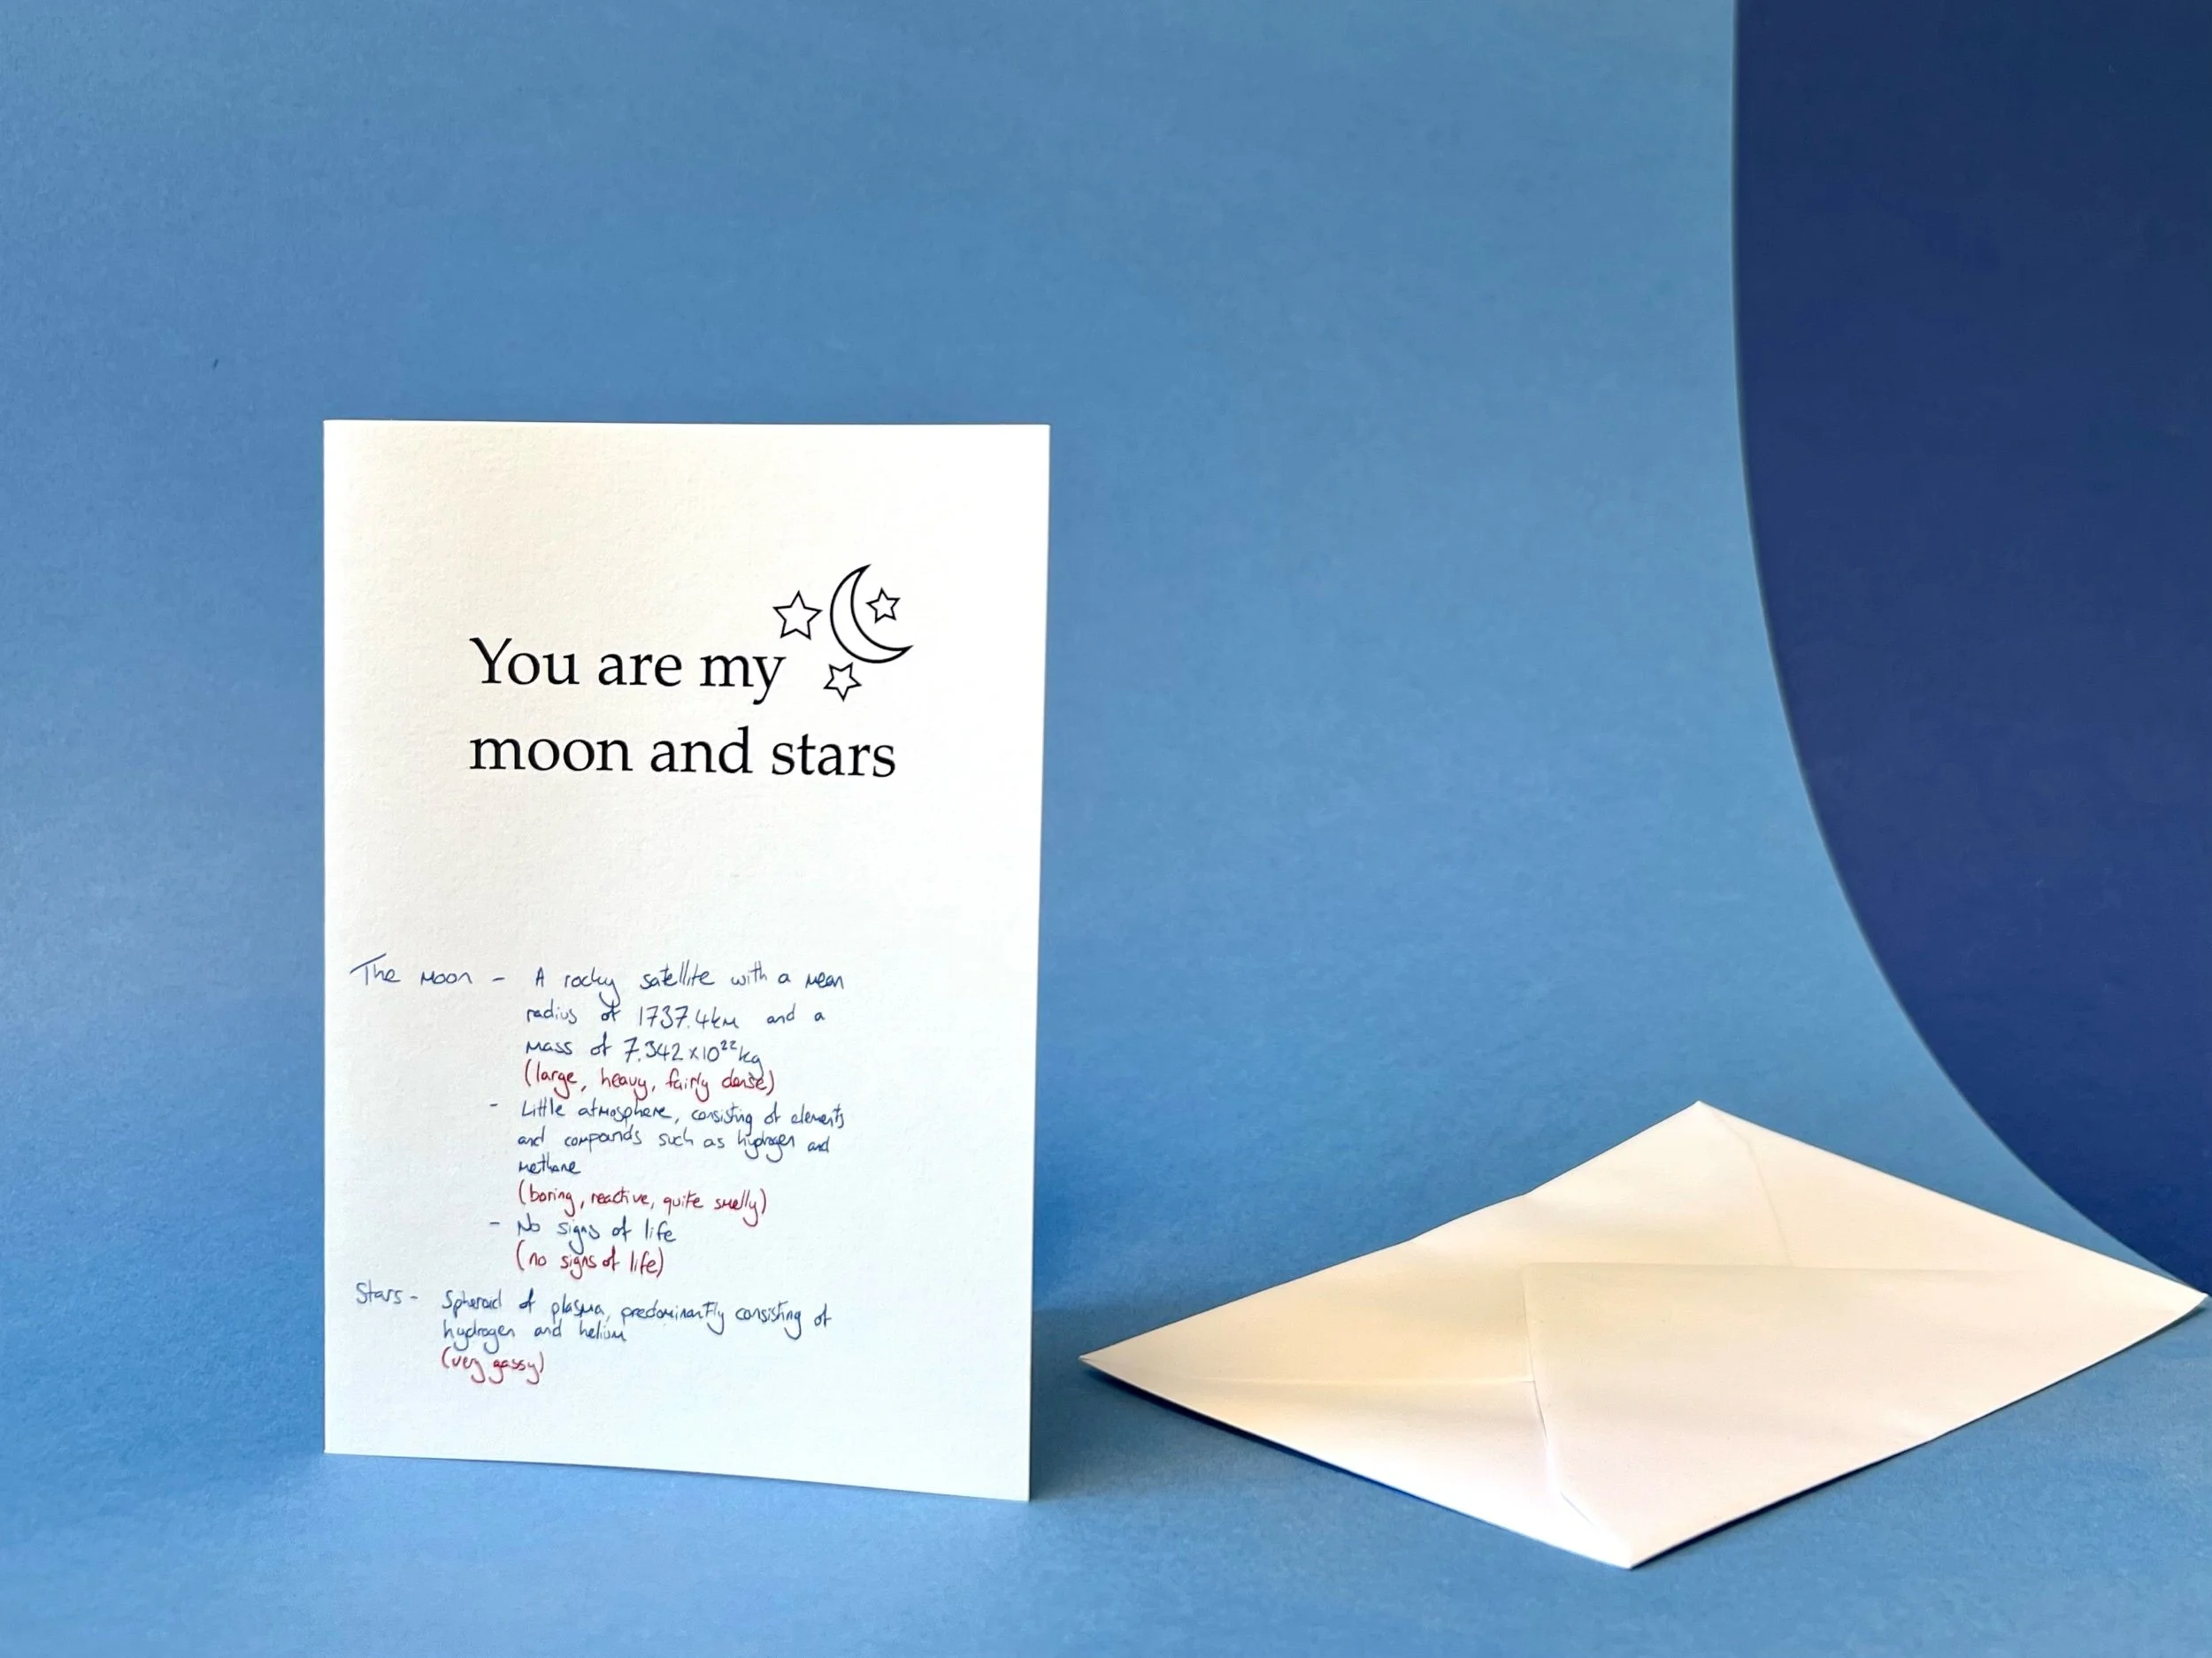 You are my
moon and stars
The Moon - A rocky satellite with a mean
radius of 1737.4km and a
mass of 7.342x10²²kg
(large, heavy, fairly dense)
- Little atmosphere, consisting of elements
and compounds such as hydrogen and
methane
(boring, reactive, quite smelly)
- No signs of life
(no signs of life)
Stars - Spheroid of plasma, predominantly consisting of
hydrogen and helium
(very gassy)